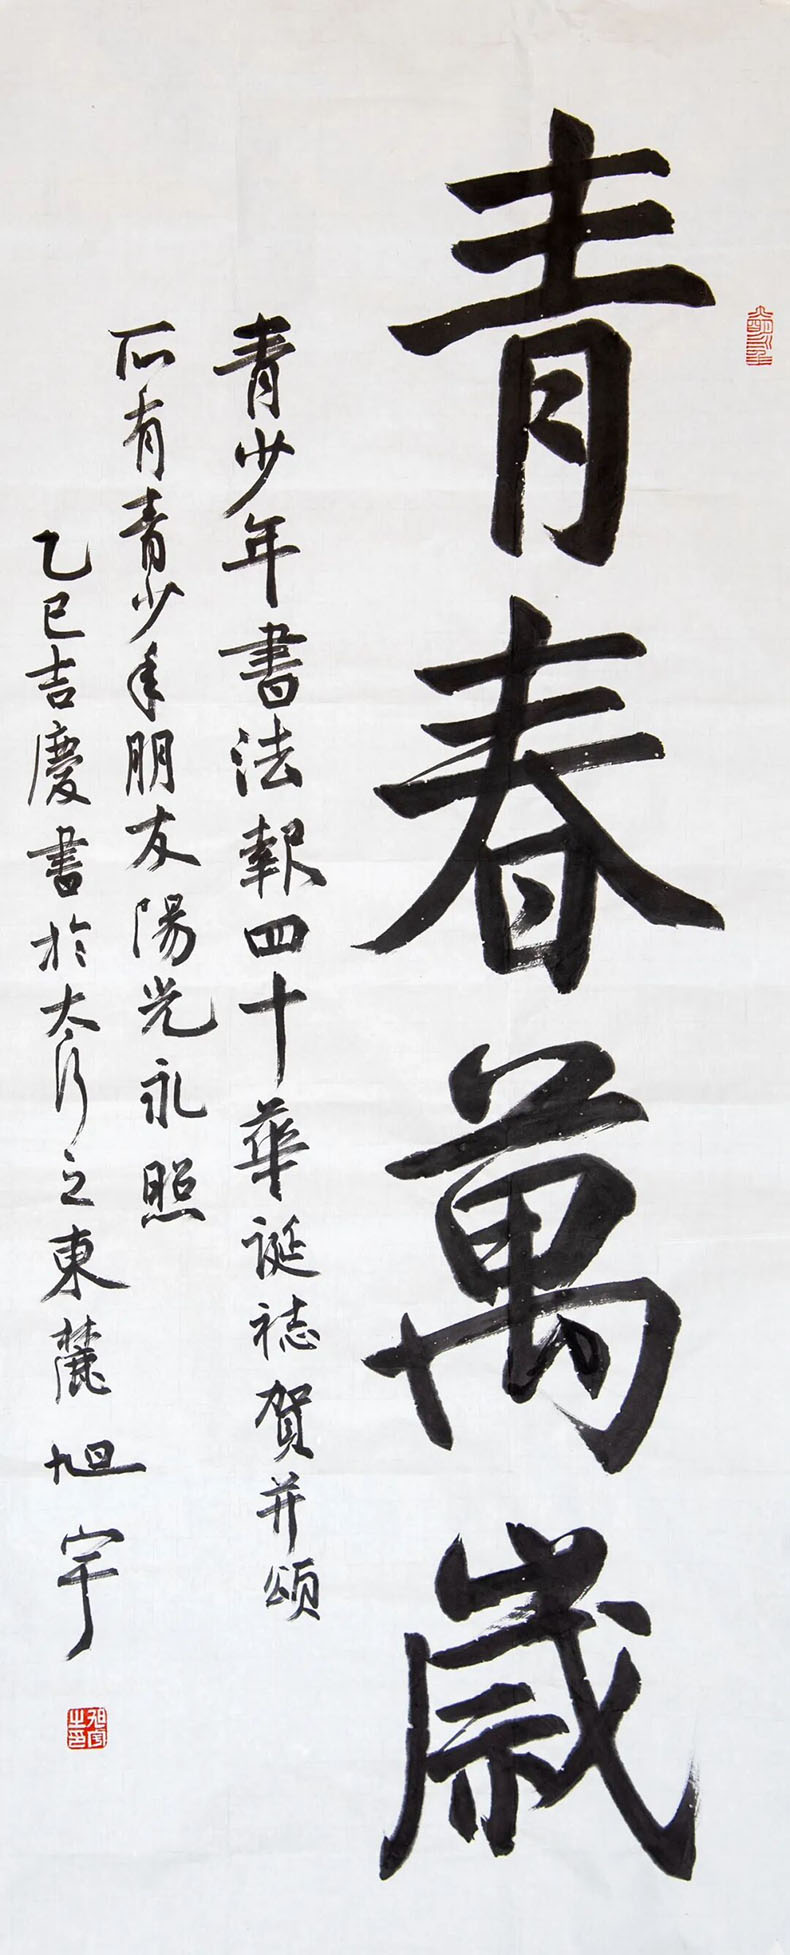 青春萬歲
青少年書法報四十華誕誌賀并頌
所有青少年朋友陽光永照
乙巳吉慶書於太行之東麓 旭宇
旭宇之印